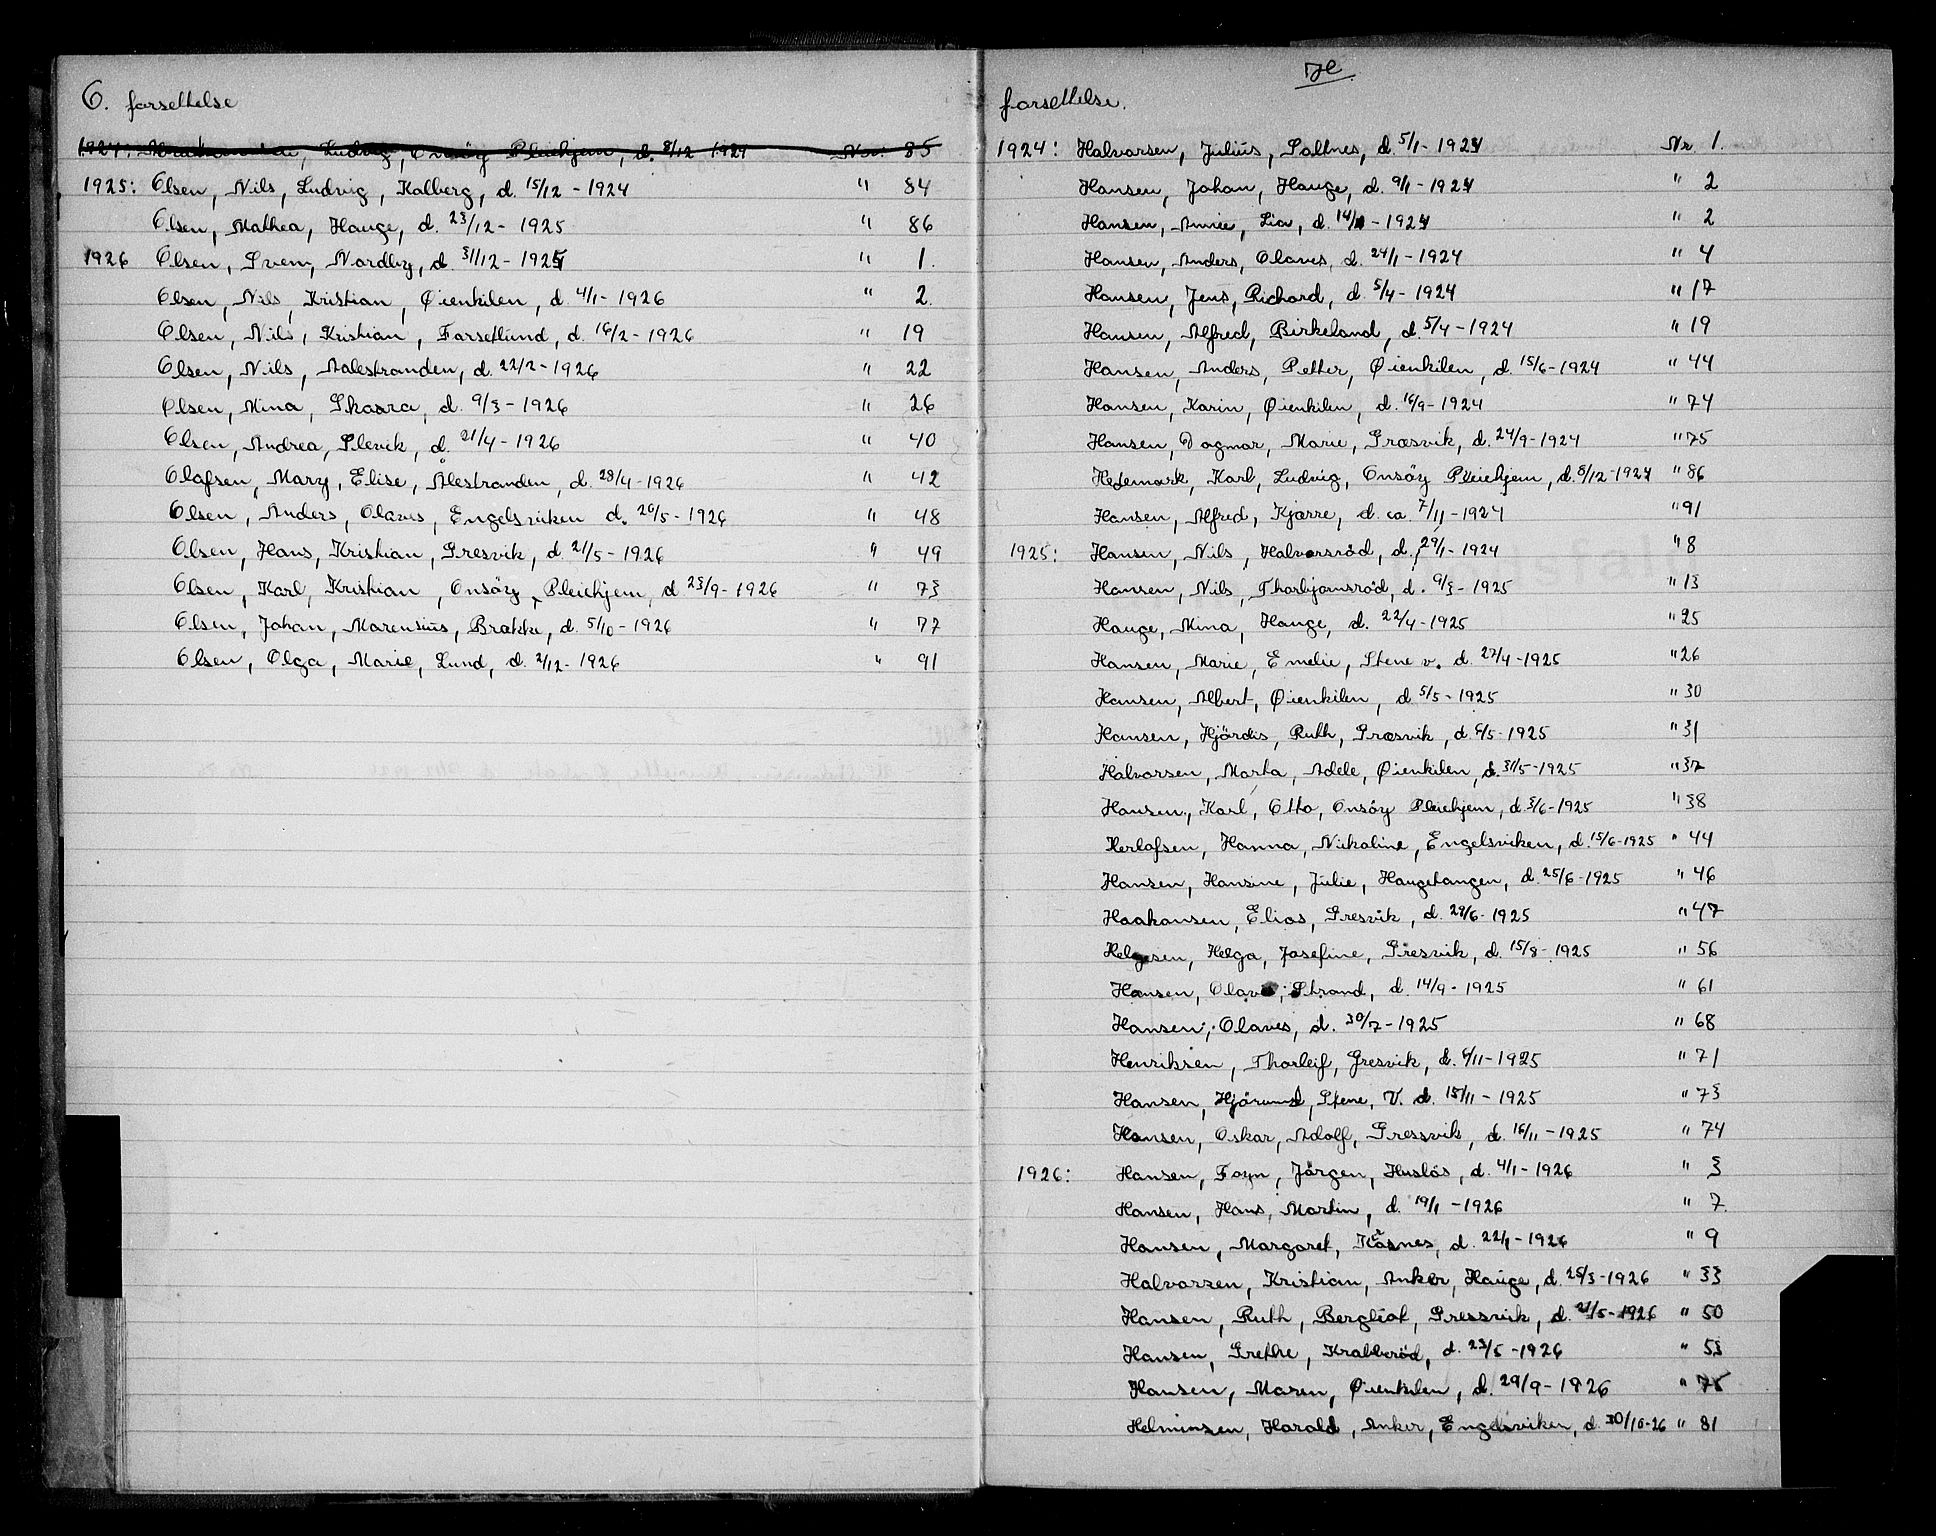 O. forsettelse
1924: Ludvig, Onsöy Pleiehjem, d. 8/12 1924 Nr. 85
1925: Olsen, Nils, Ludvig, Kalberg, d. 15/12 - 1924 " 84
Olsen, Mathea, Hauge, d. 23/12 - 1925 " 86
1926 Olsen, Svem, Nordby, d. 31/12 - 1925 " 1.
Olsen, Nils, Kristian, Øienkilen, d. 4/1 - 1926 " 2.
Olsen, Nils, Kristian, Farsetlund, d. 16/2 - 1926 " 19
Olsen, Nils, Aalestranden, d. 22/2 - 1926 " 22
Olsen, Mina, Skaara, d. 9/3 - 1926 " 26
Olsen, Andrea, Slevik, d. 21/4 - 1926 " 40
Olafsen, Mary, Elise, Ålestranden, d. 28/4 - 1926 " 42
Olsen, Anders, Olaves, Engelsviken d. 20/5 - 1926 " 48
Olsen, Hans, Kristian, Gresvik, d. 21/5 - 1926 " 49
Olsen, Karl, Kristian, Onsöy, Pleiehjem, d 23/9 - 1926 " 73
Olsen, Johan, Marensius, Brakke, d. 5/10 - 1926 " 77
Olsen, Olga, Marie, Lund, d. 2/12 - 1926 " 91
H
forsettelse.
1924: Halvorsen, Julius, Saltnes, d. 5/1 - 1924 Nr. 1.
Hansen, Johan, Hauge, d. 9/1 - 1924 " 2
Hansen, Annie, Lia, d. 14/1 - 1924 " 2
Hansen, Anders, Olaves, d. 24/1 - 1924 " 4
Hansen, Jens, Richard, d. 5/4 - 1924 " 17
Hansen, Alfred, Birkeland, d. 5/4 - 1924 " 19
Hansen, Anders, Petter, Øienkilen, d. 15/6 - 1924 " 44
Hansen, Karin, Øienkilen, d. 16/9 - 1924 " 74
Hansen, Dagmar, Marie, Græsvik, d. 24/9 - 1924 " 75
Hedemark, Karl, Ludvig, Onsöy Pleiehjem, d. 8/12 - 1924 " 86
Hansen, Alfred, Kjærre, d. ca. 7/11 - 1924 " 91
1925: Hansen, Nils, Halvorsröd, d. 29/1 - 1924 " 8
Hansen, Nils, Thorbjörnsröd, d. 9/3 - 1925 " 13
Hauge, Mina, Hauge, d. 22/4 - 1925 " 25
Hansen, Marie, Emelie, Stene v. d. 27/4 - 1925 " 26
Hansen, Albert, Øienkilen, d 5/5 - 1925 " 30
Hansen, Hjördis, Ruth, Græsvik, d. 6/5 - 1925 " 31
Halvorsen, Marta, Adele, Øienkilen, d. 31/5 - 1925 " 37
Hansen, Karl, Otto, Onsöy Pleiehjem, d. 3/6 - 1925 " 38
Herlofsen, Hanna, Nikoline, Engelsviken, d. 15/6 - 1925 " 44
Hansen, Hansine, Julie, Haugetangen, d. 25/6 - 1925 " 46
Haakonsen, Elias, Gresvik, d. 29/6 - 1925 " 47
Helgesen, Helga, Josefine, Gresvik, d. 15/8 - 1925 " 56
Hansen, Strand, d. 14/9 - 1925 " 61
Hansen, Olaves, d. 30/7 - 1925 " 68
Henriksen, Thorleif, Gresvik, d. 6/11 - 1925 " 71
Hansen, Hjörund, Stene, V. d. 15/11 - 1925 " 73
Hansen, Oskar, Adolf, Gressvik, d. 16/11 - 1925 " 74
1926: Hansen, Foyn, Jörgen, Huslös, d. 4/1 - 1926 " 3
Hansen, Hans, Martin, d. 19/1 - 1926 " 7.
Hansen, Margaret, Kåsnes, d. 22/1 - 1926 " 9
Halvorsen, Kristian, Anker, Hauge, d. 25/3 - 1926 " 33
Hansen, Ruth, Bergliot, Gressvik, d. 21/5 - 1926 " 50
Hansen, Grethe, Krabberöd, d. 23/5 - 1926 " 53
Hansen, Maren, Øienkilen, d. 29/9 - 1926 " 75
Helminsen, Harald, Anker, Engelsviken, d. 30/10 - 26 " 81